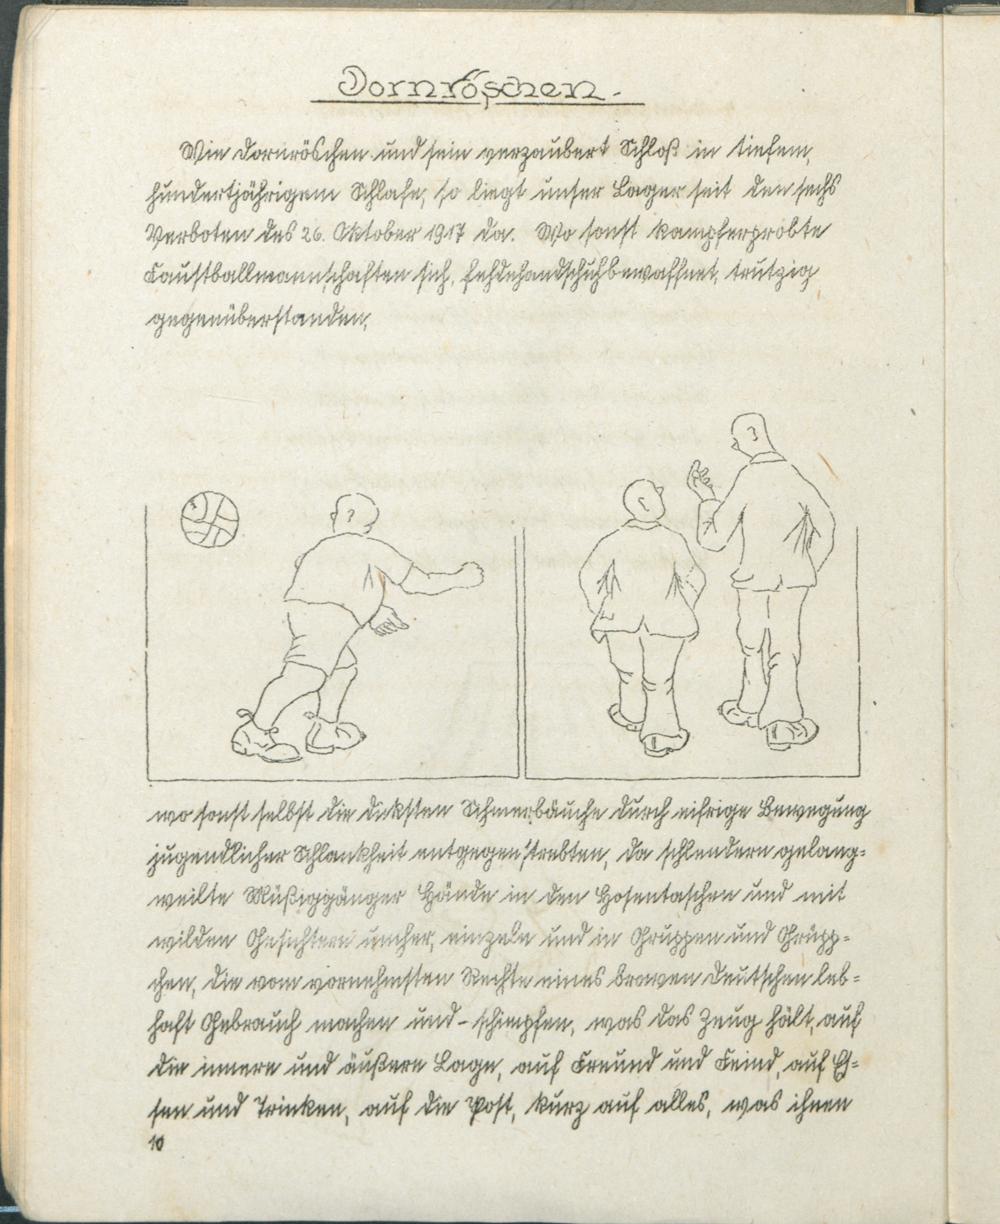 Dornröschen.
Wie Dornröschen und sein verzaubert Schloß in tiefem,
hundertjährigem Schlafe, so liegt unser Lager seit den sechs
Verboten des 26. Oktober 1917 da. Wo sonst kampferprobte
Faustballmannschaften sich, fehdehandschuhbewaffnet, trutzig
gegenüberstanden,
wo sonst selbst die dicksten Schmerbäuche durch eifrige Bewegung
jugendlicher Schlankheit entgegenstrebten, da schlendern gelang-
weilte Müßiggänger Hände in den Hosentaschen und mit
wilden Gesichtern umher, einzeln und in Gruppen und Grüpp-
chen, die vom vornehmsten Rechte eines braven Deutschen leb-
haft Gebrauch machen und - schimpfen, was das Zeug hält, auf
die innere und äußere Lage, auf Freund und Feind, auf Es-
sen und Trinken, auf die Post, kurz auf alles, was ihnen
10